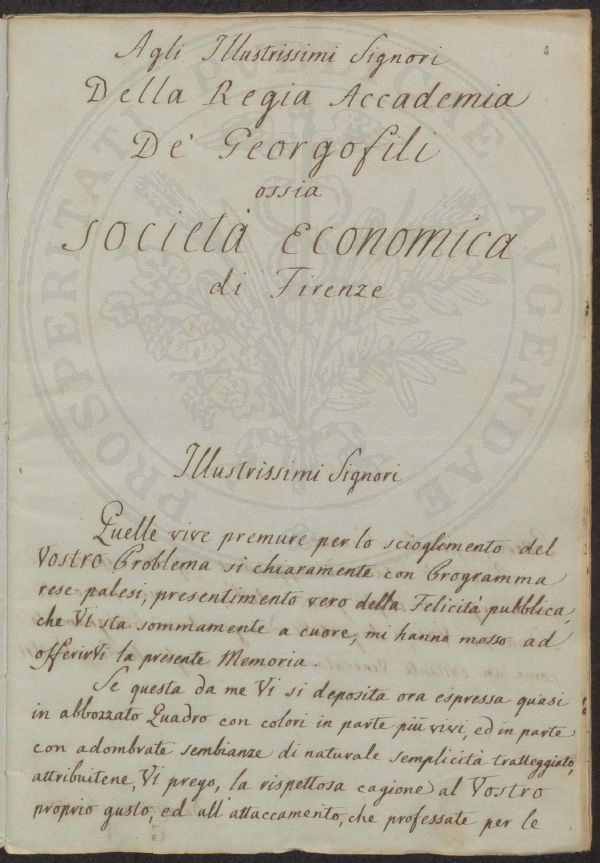 4
Agli Illustrissimi Signori
Della Regia Accademia
De' Georgofili
ossia
Società Economica
di Firenze
PROSPERITATI PUBLICAE AVGENDAE
Illustrissimi Signori
Quelle vive premure per lo scioglimento del
Vostro Problema si chiaramente con Programma
rese palesi, presentimento vero della Felicità pubblica,
che Vi sta sommamente a cuore, mi hanno mosso ad
offerirVi la presente Memoria.
Se questa da me Vi si deposita ora espressa quasi
in abbozzato Quadro con colori in parte più vivi, ed in parte
con adombrate sembianze di naturale semplicità tratteggiato,
attribuitene, Vi prego, la rispettosa cagione al Vostro
proprio gusto, ed all'attaccamento, che professate per le